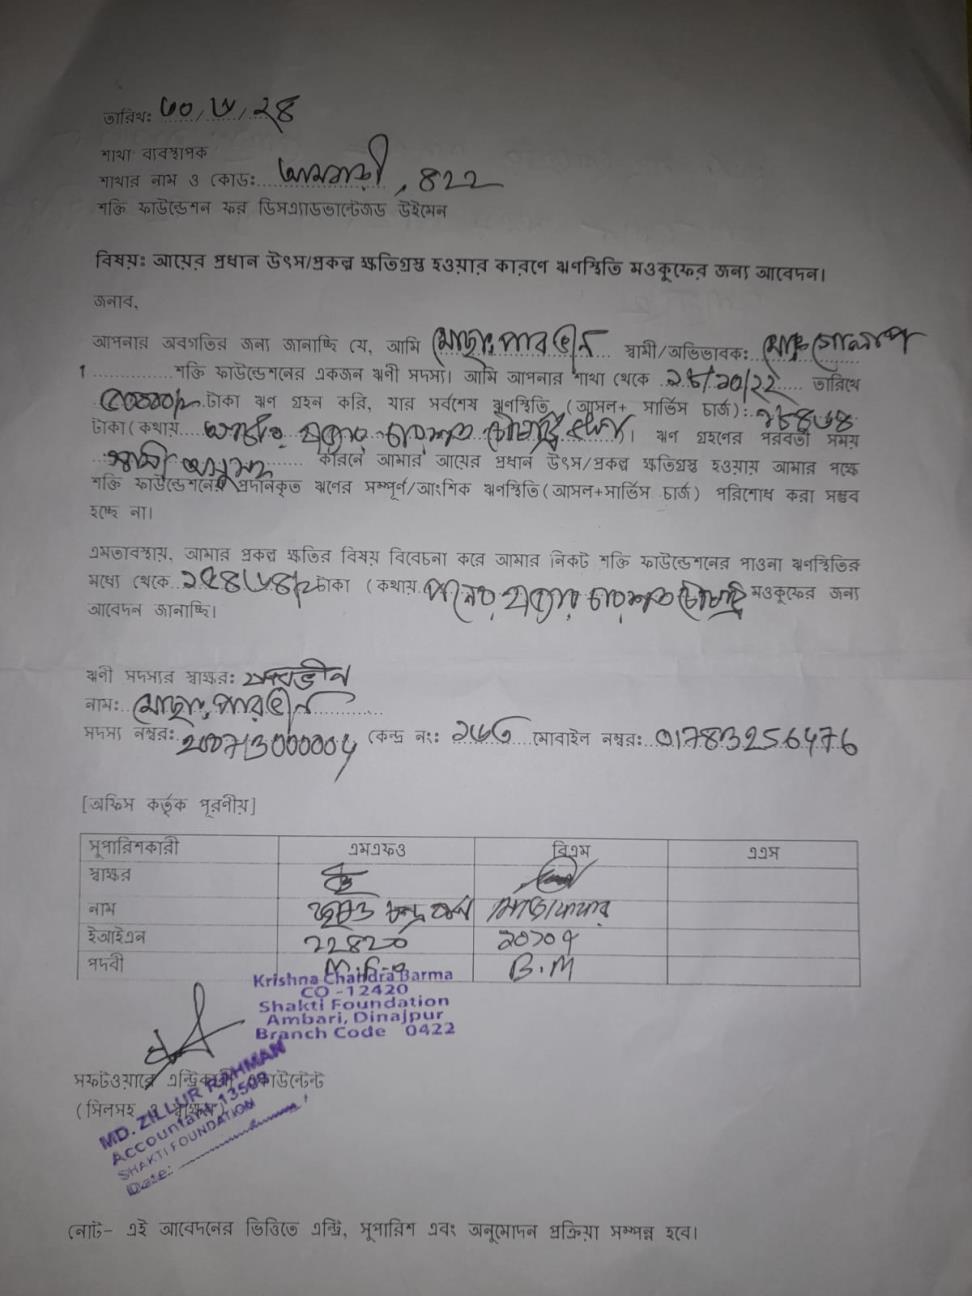 তারিখ: ৩০/৬/২৪
শাখা ব্যবস্থাপক
শাখার নাম ও কোড: আমবাড়ী, ৪২২
শক্তি ফাউন্ডেশন ফর ডিসএ্যাডভান্টেজড উইমেন
বিষয়: আয়ের প্রধান উৎস/প্রকল্প ক্ষতিগ্রস্ত হওয়ার কারণে ঋণস্থিতি মওকুফের জন্য আবেদন।
জনাব,
আপনার অবগতির জন্য জানাচ্ছি যে, আমি মোছাঃ পারভীন স্বামী/অভিভাবক: মোঃ গোলাপ
1 শক্তি ফাউন্ডেশনের একজন ঋণী সদস্য। আমি আপনার শাখা থেকে তারিখে
৫০০০০/= টাকা ঋণ গ্রহন করি, যার সর্বশেষ ঋণস্থিতি (আসল+ সার্ভিস চার্জ):
টাকা(কথায় হাজার চৌত্রিশ)। ঋণ গ্রহণের পরবর্তী সময়
স্বামী অসুস্থ কারনে আমার আয়ের প্রধান উৎস/প্রকল্প ক্ষতিগ্রস্ত হওয়ায় আমার পক্ষে
শক্তি ফাউন্ডেশনের প্রদানকৃত ঋণের সম্পূর্ণ/আংশিক ঋণস্থিতি(আসল+সার্ভিস চার্জ) পরিশোধ করা সম্ভব
হচ্ছে না।
এমতাবস্থায়, আমার প্রকল্প ক্ষতির বিষয় বিবেচনা করে আমার নিকট শক্তি ফাউন্ডেশনের পাওনা ঋণস্থিতির
মধ্যে থেকে টাকা (কথায় পনের হাজার চৌত্রিশ মওকুফের জন্য
আবেদন জানাচ্ছি।
ঋণী সদস্যর স্বাক্ষর: পারভীন
নাম: মোছাঃ পারভীন
সদস্য নম্বর: কেন্দ্র নং: মোবাইল নম্বর: 01783256476
[অফিস কর্তৃক পূরণীয়]
সুপারিশকারী এমএফও বিএম এএস
স্বাক্ষর
নাম
ইআইএন 12420 ২০২০৭
পদবী M.F.O B.M
Krishna Chandra Barma
CO -12420
Shakti Foundation
Ambari, Dinajpur
Branch Code 0422
সফটওয়্যারে এন্ট্রিকারী একাউন্টেন্ট
(সিলসহ স্বাক্ষর)
MD. ZILLUR RAHMAN
Accountant-13509
SHAKTI FOUNDATION
Date:
নোট- এই আবেদনের ভিত্তিতে এন্ট্রি, সুপারিশ এবং অনুমোদন প্রক্রিয়া সম্পন্ন হবে।